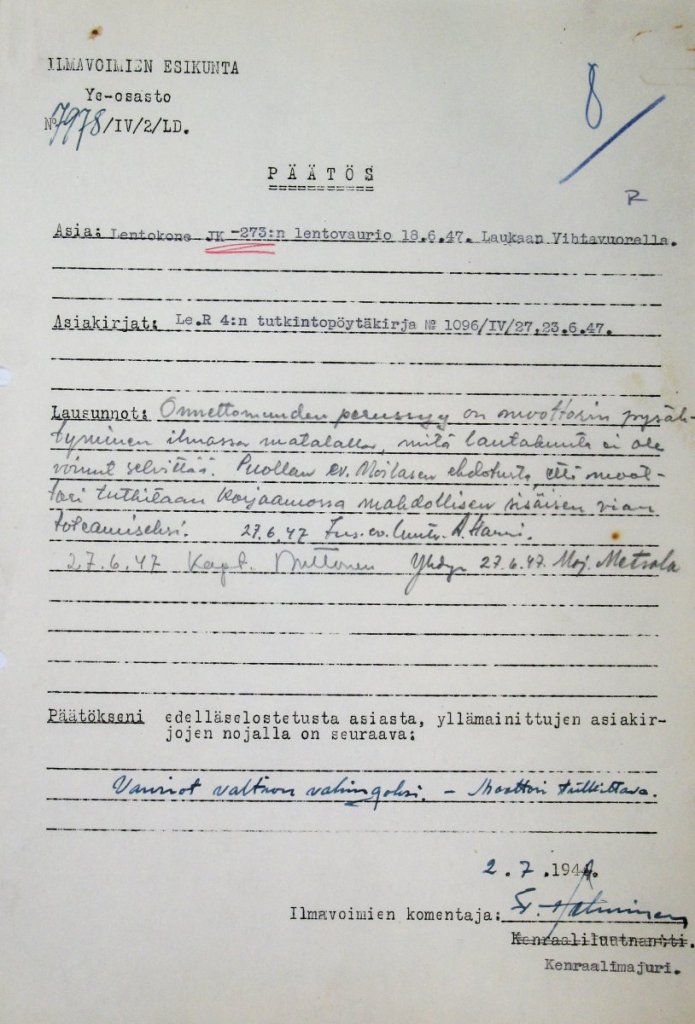 ILMAVOIMIEN ESIKUNTA
Ye-osasto
№ 7978/IV/2/LD.
8
PÄÄTÖS
R
Asia: Lentokone JK-273:n lentovaurio 18.6.47. Laukaan Vihtavuorella.
Asiakirjat: Le.R 4:n tutkintopöytäkirja № 1096/IV/27,23.6.47.
Lausunnot: Onnettomuuden perussyy on moottorin pysäh-
tyminen ilmassa matalalla, mitä lautakunta ei ole
voinut selvittää. Puollan ev. Moilasen ehdotusta, että moot-
tori tutkitaan korjaamossa mahdollisen sisäisen vian
toteamiseksi. 27.6.47 Ins.ev.luutn.
27.6.47 Kapt. Yhdyn 27.6.47. Maj. Metsola
Päätökseni edelläselostetusta asiasta, yllämainittujen asiakir-
jojen nojalla on seuraava:
Vauriot valtion vahingoksi. - Moottori tutkittava.
2.7.1947.
Ilmavoimien komentaja:
Kenraaliluutnantti.
Kenraalimajuri.